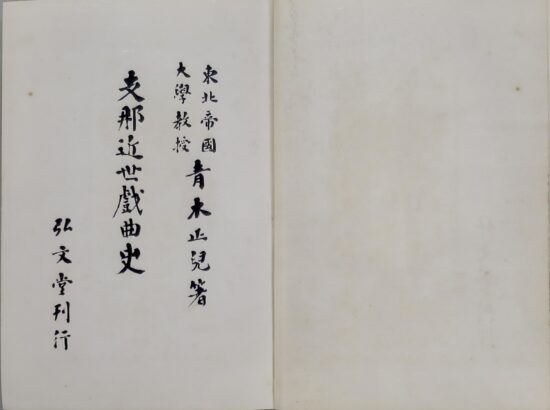 東北帝國
大學教授
青木正兒著
支那近世戲曲史
弘文堂刊行